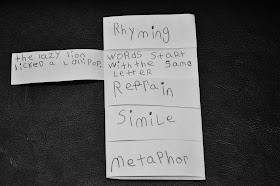 Rhyming
the lazy lion
licked a Lollipop.
WORDS START
With the same
Letter
Refrain
Simile
metaphor